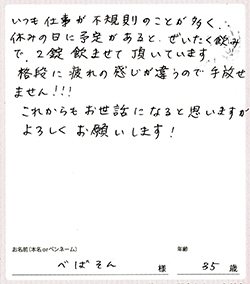 いつも仕事が不規則のことが多く、
休みの日に予定があると、ぜいたく飲み
で、2錠飲ませて頂いています。
格段に疲れの感じが違うので手放せ
ません!!!
これからもお世話になると思いますが
よろしくお願いします!
お名前(本名orペンネーム) 年齢
べばそん 様 35 歳